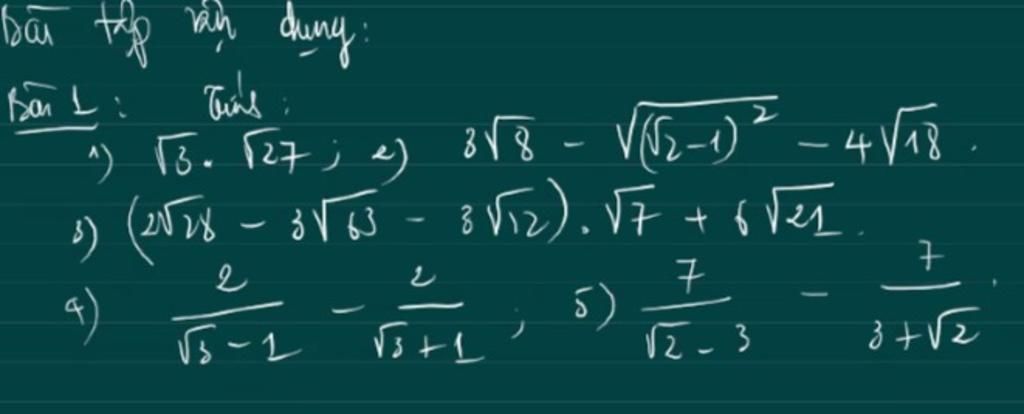 Bài tập vận dụng:
Bài 1: Tính:
1) √3 . √27 ; 2) 3√8 - √((√2-1)²) - 4√18 .
3) (2√28 - 3√63 - 3√12) . √7 + 6√21 .
4) 2/(√3-1) - 2/(√3+1) ; 5) 7/(√2-3) - 7/(3+√2) .